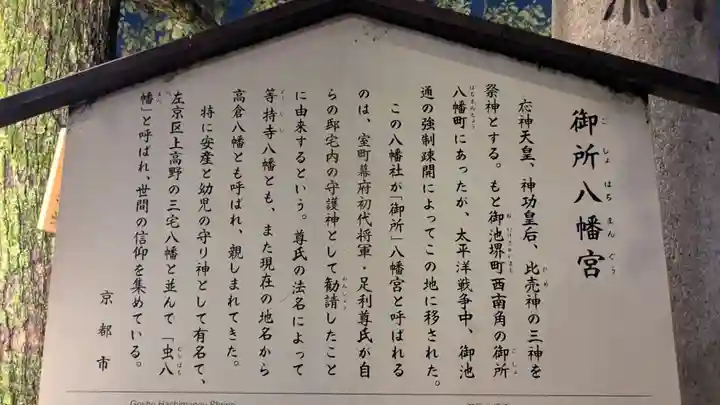 御所八幡宮
ごしょはちまんぐう
応神天皇、神功皇后、比売神の三神を
ひめ
祭神とする。もと御池堺町西南角の御所
おいけさかいまち
ごしょ
八幡町にあったが、太平洋戦争中、御池
はちまんちょう
通の強制疎開によってこの地に移された。
この八幡社が「御所」八幡宮と呼ばれる
のは、室町幕府初代将軍・足利尊氏が自
らの邸宅内の守護神として勧請したこと
かんじょう
に由来するという。尊氏の法名によって
等持寺八幡とも、また現在の地名から
とうじじ
高倉八幡とも呼ばれ、親しまれてきた。
特に安産と幼児の守り神として有名で、
左京区上高野の三宅八幡と並んで「虫八
むしはち
幡」と呼ばれ、世間の信仰を集めている。
まん
京都市
Gosho Hachimangu Shrine